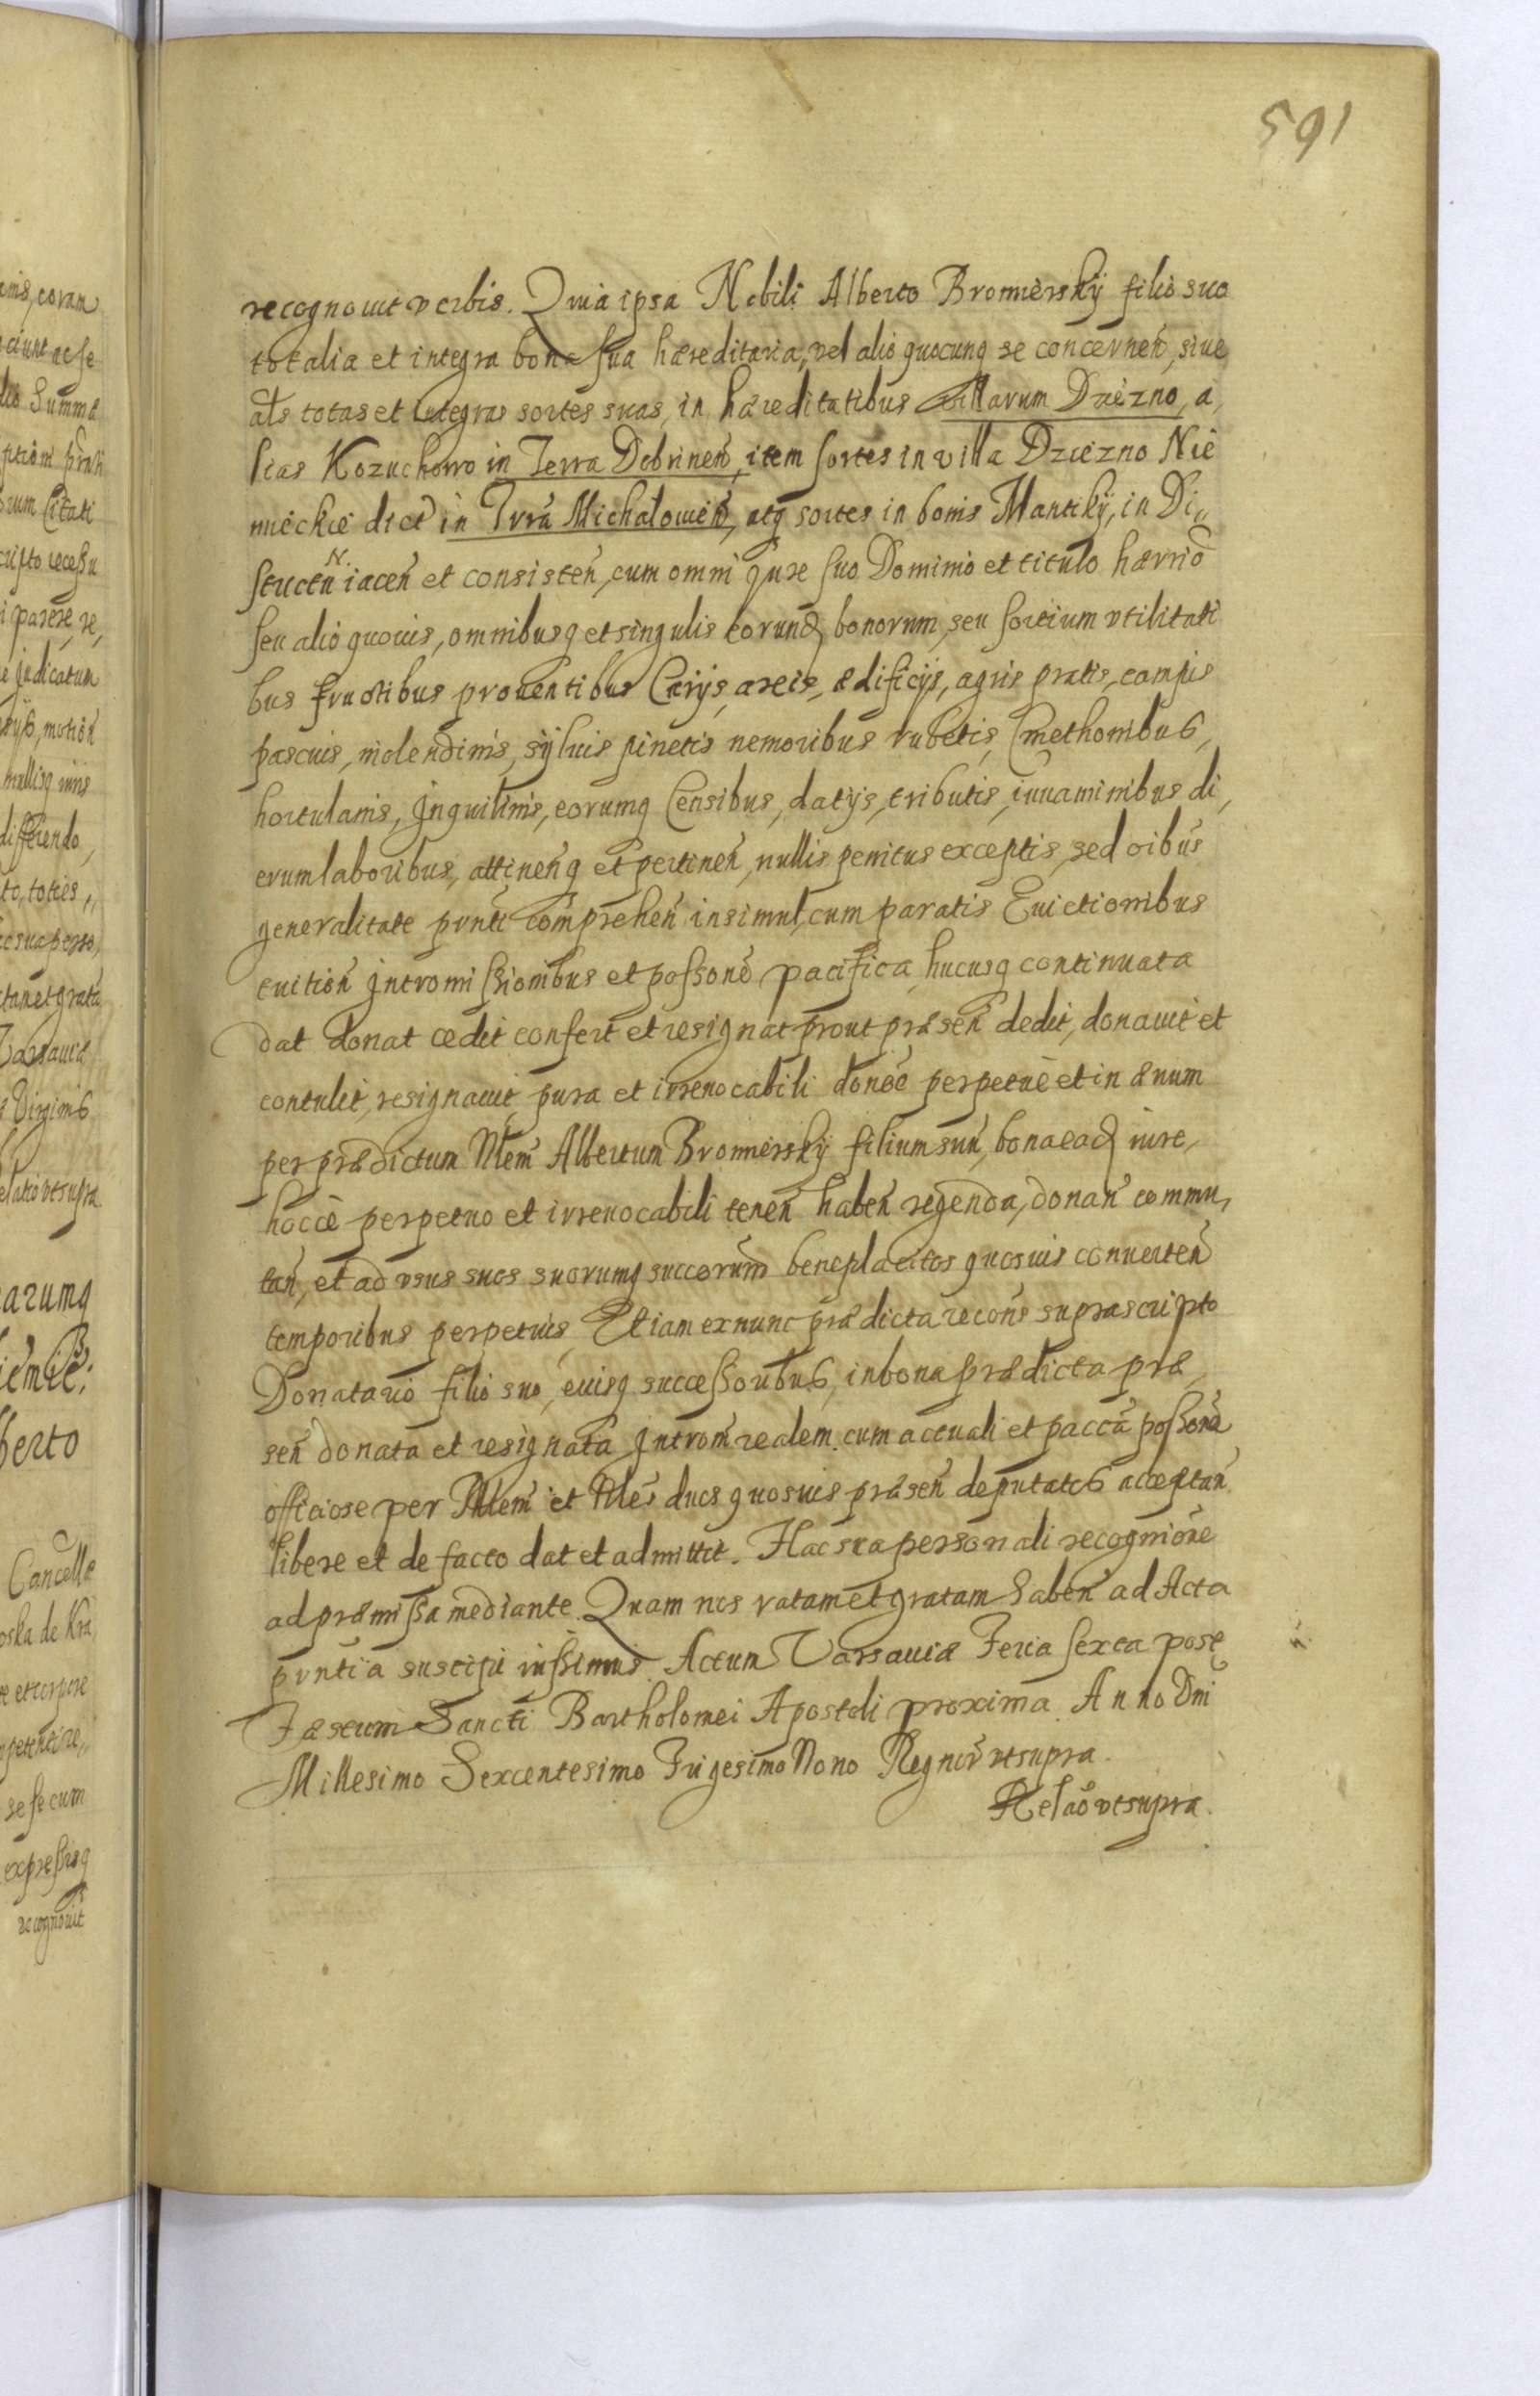 591
recognouit verbis. Quia ipsa Nobili Alberto Bromiersky filio suo
totalia et integra bona sua haereditaria, vel alio quocunq se concernen, siue
als totas et integras sortes suas, in haereditatibus villarum Dziezno, a,
lias Kozuchowo in Terra Dobrinen, item sortes in villa Dziezno Nie
mieckie dict in Trra Michalouien, atq sortes in bonis Mantiky, in Di,,
structu N. iacen et consisten, cum omni Jure suo Dominio et titulo haerrio
seu alio quouis, omnibusq et singulis eorund bonorum, seu sortium vtilitati
bus fructibus prouentibus Curys, areis, aedificys, agris pratis, campis
pascuis, molendinis, syluis pinetis nemoribus rubetis, Cmethonibus,
hortulanis, Inquilinis, eorumq Censibus, datys, tributis, iuuaminibus di,
erum laboribus, attinenq et pertinen, nullis penitus exceptis, sed oibus
generalitate pnti comprehen insimul, cum paratis Euictionibus
euition Intromissionibus et possone pacifica hucusq continuata
dat donat cedit confert et resignat prout praesen dedit, donauit et
contulit, resignauit pura et irreuocabili donoe perpetue et in aeuum
per praedictum Nlem Albertum Bromiersky filium suu, bona ead iure,
hocce perpetuo et irreuocabili tenen haben regenda, donan commu,
tan, et ad vsus suos suorumq succorum beneplacitos quosuis conuerten
temporibus perpetuis, Etiam ex nunc praedicta recons suprascripto
Donatario filio suo, euisq successoribus, in bona praedicta prae,
sen donata et resignata Introm realem, cum actuali et pacca possone
officiose per Mlem et Nles duos quosuis praesen deputatos acceptan
libere et de facto dat et admittit. Hac sua personali recognione
ad praemissa mediante. Quam nos ratam et gratam haben ad Acta
pntia suscipi iussimus. Actum Varsauiae Feria sexta post
Faestum Sancti Bartholomei Apostoli proxima. Anno Dni
Millesimo Sexcentesimo Trigesimo Nono Regnor vt supra.
Relao vt supra.